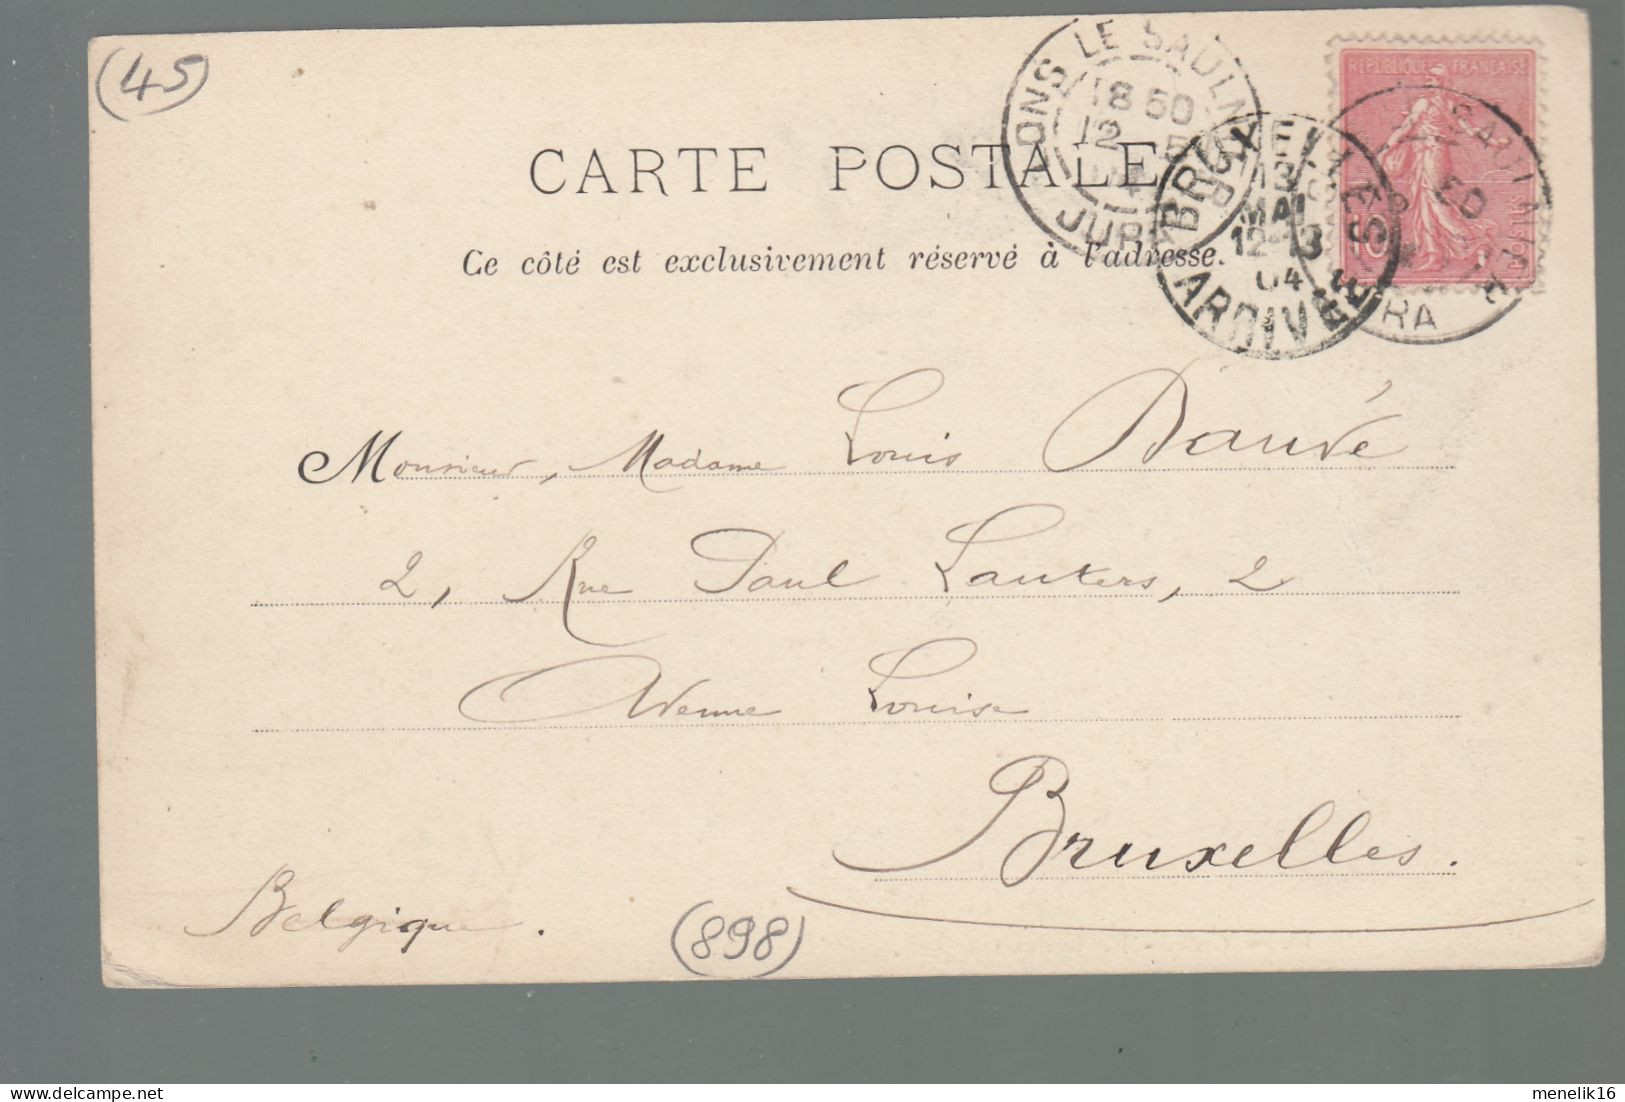 (45)
LONS LE SAULNIER
18 50
12 5
04
JURA
BRUXELLES
13
MAI
12-13
04
ARRIVÉE
REPUBLIQUE FRANÇAISE
10
CARTE POSTALE
Ce côté est exclusivement réservé à l'adresse.
Monsieur, Madame Louis Dauvé
2, Rue Paul Lauters, 2
Avenue Louise
Bruxelles.
Belgique.
(898)
delcampe.net
menelik16